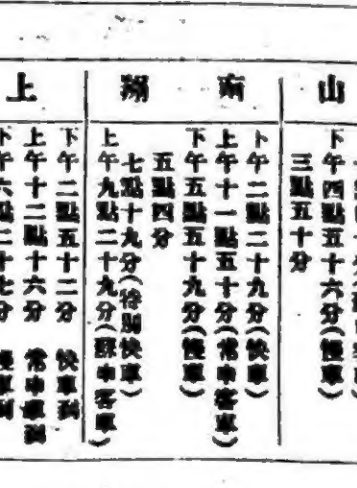 山
下午四點五十六分(慢車)
三點五十分
南翔
下午二點二十九分(快車)
上午十一點五十分(常申客車)
下午五點五十九分(慢車)
五點四分
七點十九分(特別快車)
上午九點二十九分(蘇申客車)
上
下午二點五十二分 快車到
上午十二點十六分 常申車到
下午六點二十七分 慢車到